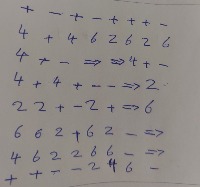 + - + - + + + -
4 + 4 6 2 6 2 6
4 + - => => 4 + -
4 + 4 + - - => 2
2 2 + - 2 + => 6
6 6 2 + 6 2 - =>
4 6 2 2 6 6 - =>
+ + - - 2 4 6 -